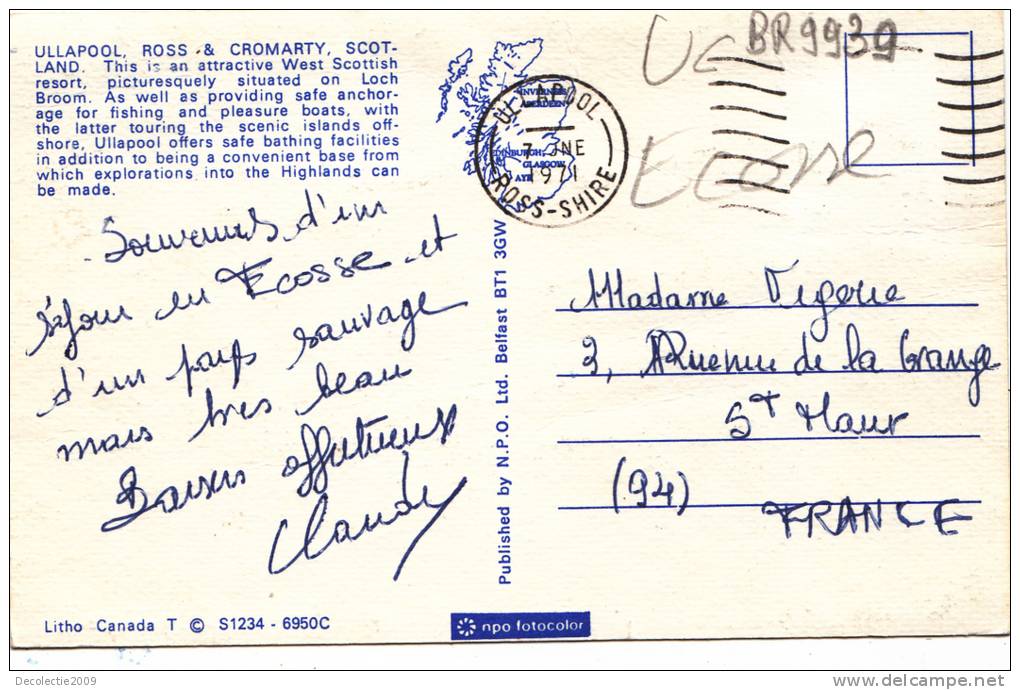 ULLAPOOL, ROSS & CROMARTY, SCOT-
LAND. This is an attractive West Scottish
resort, picturesquely situated on Loch
Broom. As well as providing safe anchor-
age for fishing and pleasure boats, with
the latter touring the scenic islands off-
shore, Ullapool offers safe bathing facilities
in addition to being a convenient base from
which explorations into the Highlands can
be made.
Souvenirs d'un
séjour en Ecosse et
d'un pays sauvage
mais très beau
Baisers affectueux
Claude
Litho Canada T © S1234 - 6950C
Published by N.P.O. Ltd. Belfast BT1 3GW
npo fotocolor
INVERNESS
ABERDEEN
EDINBURGH
GLASGOW
AYR
ULLAPOOL
7 JNE
1971
ROSS-SHIRE
BR9939
Ecosse
Madame Vigerie
3, Avenue de la Grange
St Maur
(94)
FRANCE
Decolectie2009
delcampe.net